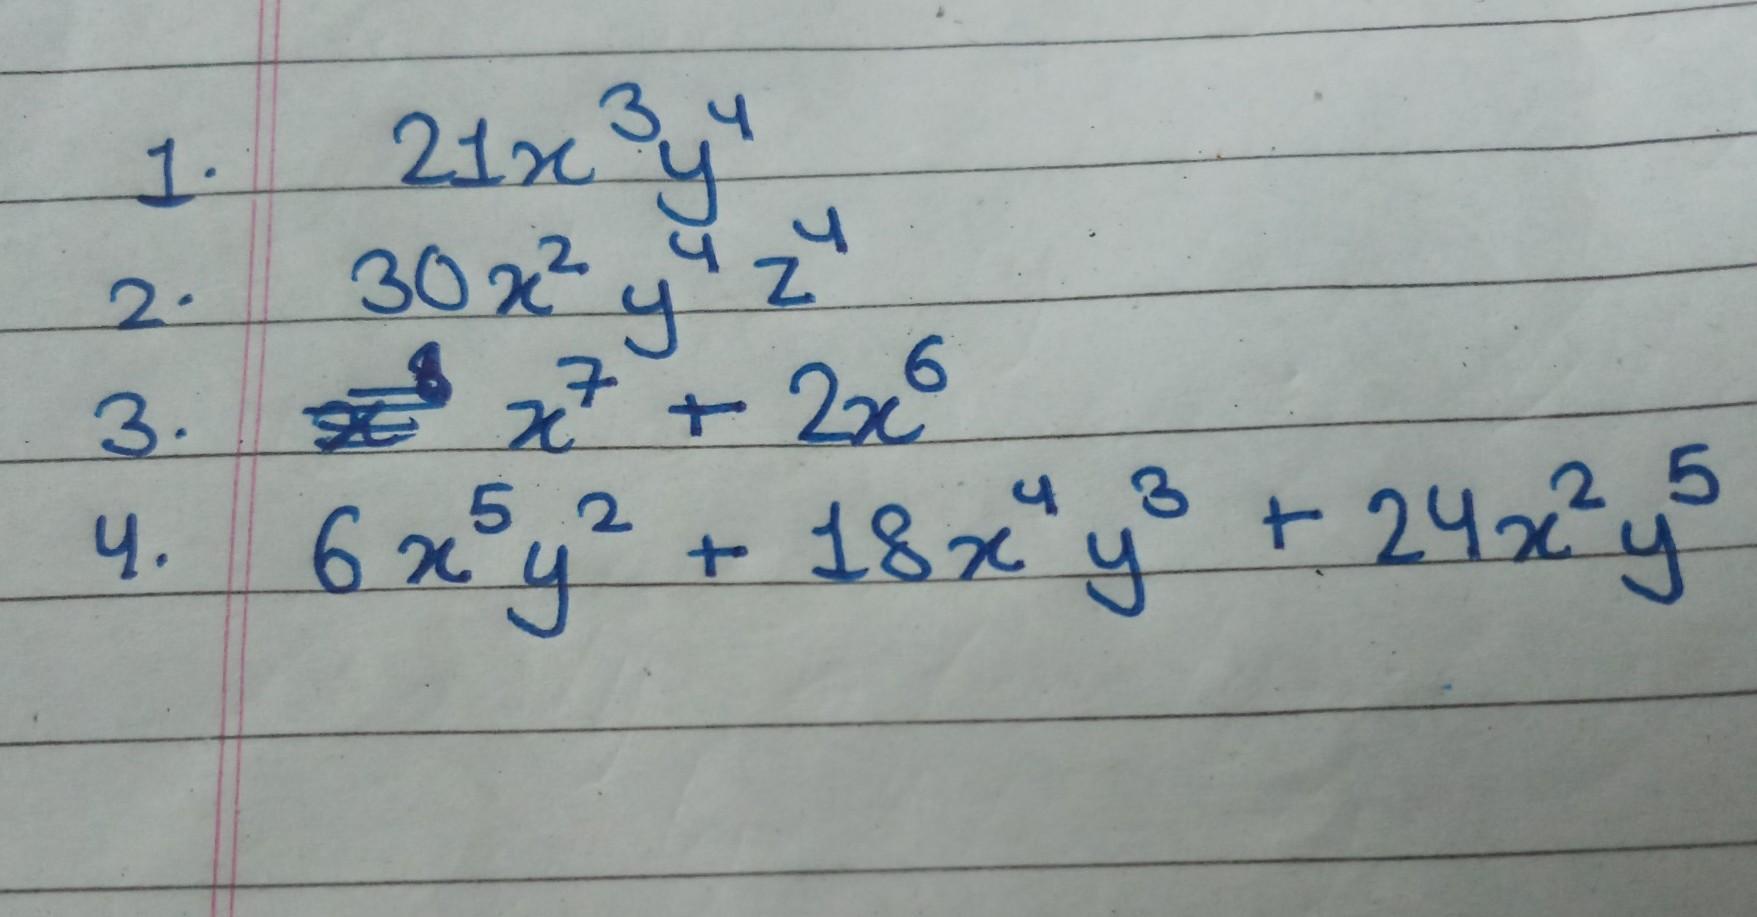 1. 21x³y⁴
2. 30x²y⁴z⁴
3. x⁷ + 2x⁶
4. 6x⁵y² + 18x⁴y³ + 24x²y⁵